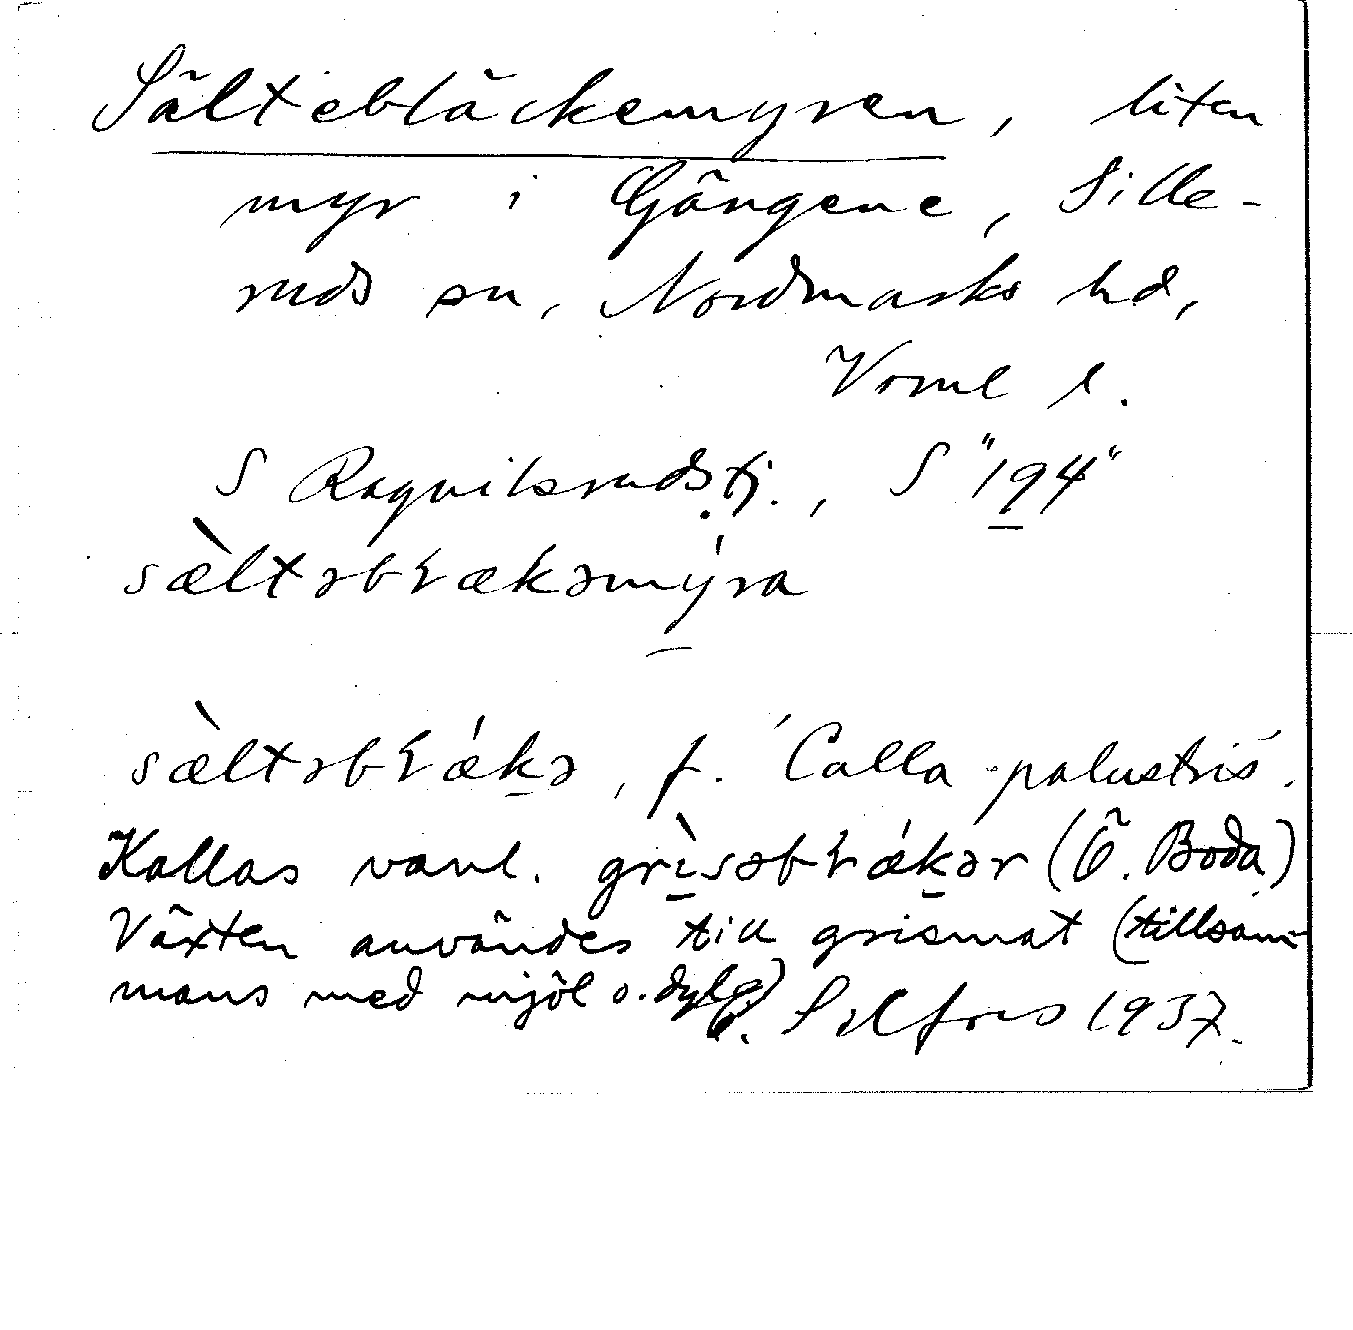 Sältebläckemyren, liten
myr i Gängene, Sille-
ruds sn, Nordmarks hd,
Verml l.
S Ragvilsrudstj., S "194"
sæ̀ltəbɽækəmýra
sæ̀ltəbɽǽkə, f. ´Calla palustris´.
Kallas vanl. grìsəbɽǽkər (Ö. Boda)
Växten användes till grismat (tillsam-
mans med mjöl o. dylg). Selfors 1937.